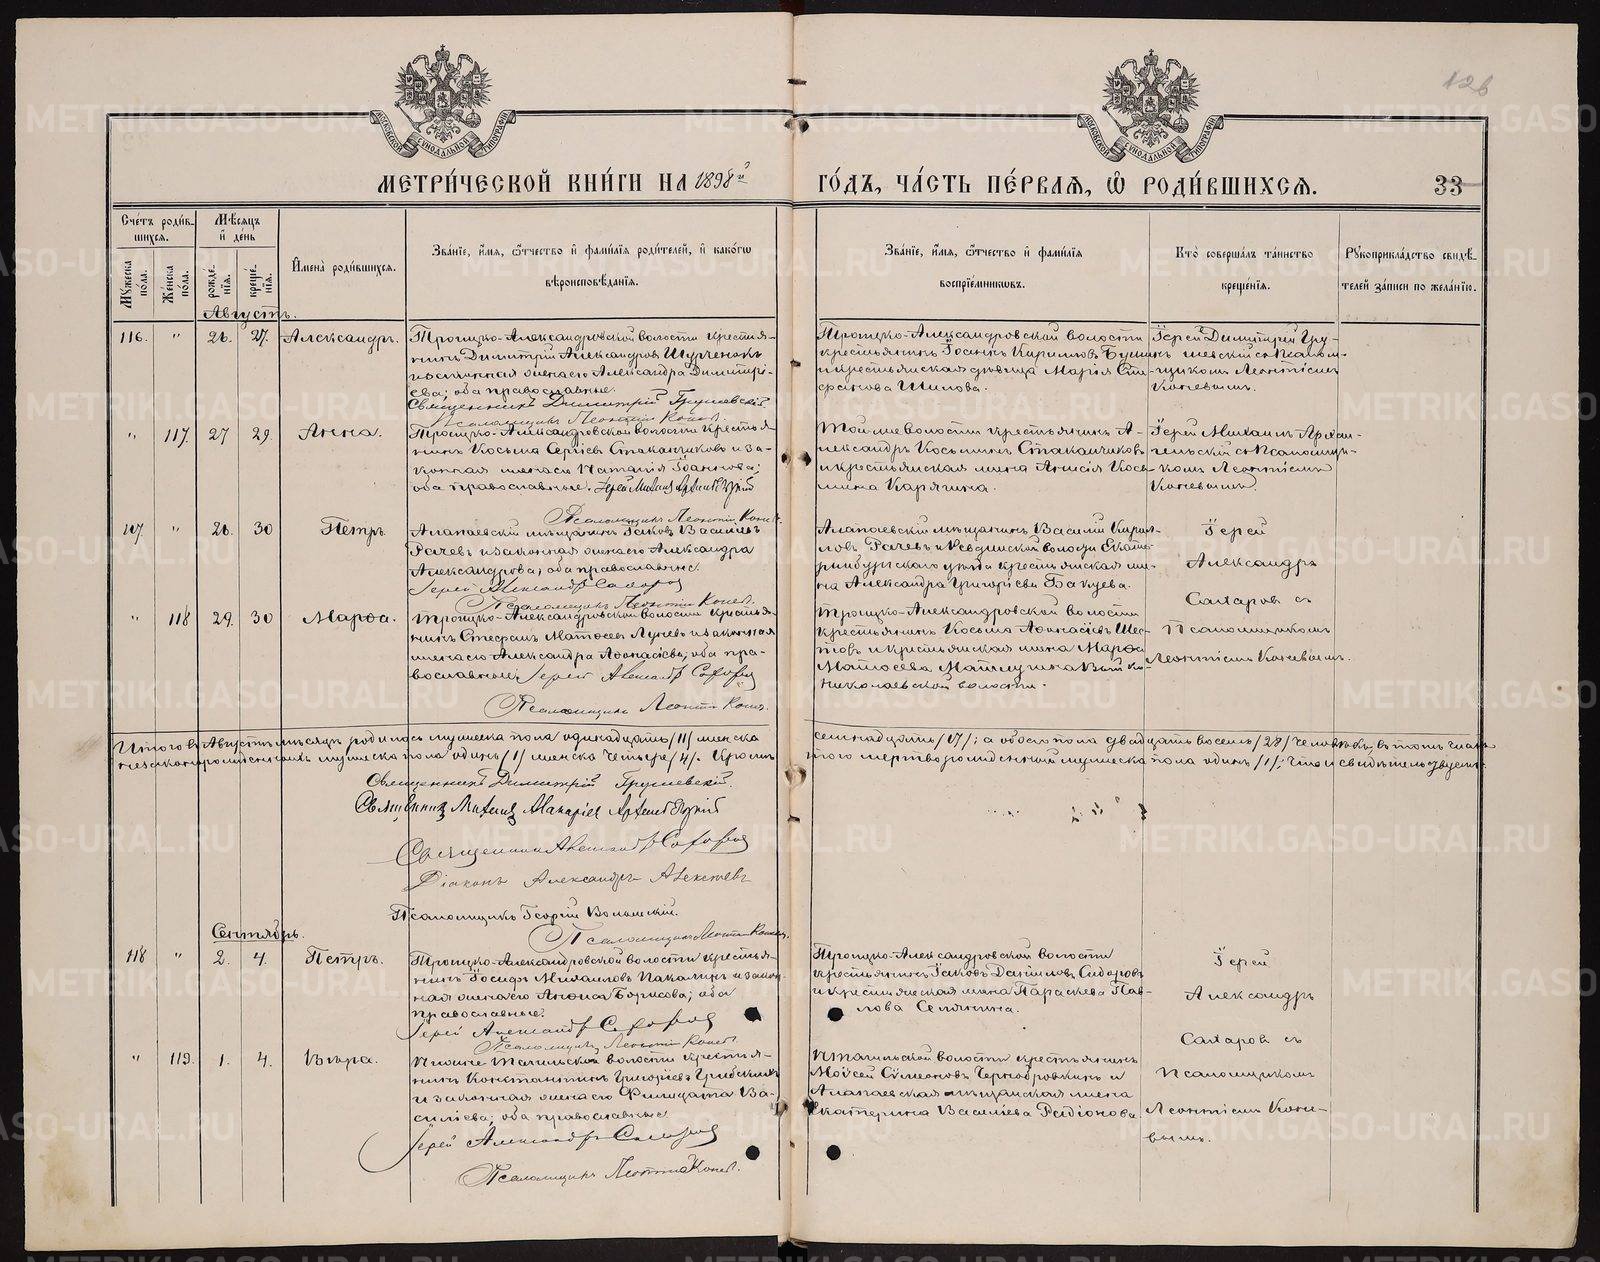 126
МОСКОВСКОЙ СѴНОДАЛЬНОЙ ТИПОГРАФІИ
МОСКОВСКОЙ СѴНОДАЛЬНОЙ ТИПОГРАФІИ
МЕТРИ́ЧЕСКОЙ КНИ́ГИ НА 1898й
ГО́ДЪ, ЧА́СТЬ ПЕ́РВАѦ, Ѽ РОДИ́ВШИХСѦ. 33
Сче́тъ роди́в-
шихсѧ.
Мѣ́сѧцъ
и҆ де́нь
Мꙋ́жеска
по́ла.
Же́нска
по́ла.
рожде́-
нїѧ.
креще́-
нїѧ.
И҆мена̀ роди́вшихсѧ.
Зва́нїе, и҆́мѧ, ѻ҆́тчество и҆ фами́лїѧ роди́телей, и҆ како́гѡ
вѣроисповѣ́данїѧ.
Зва́нїе, и҆́мѧ, ѻ҆́тчество и҆ фами́лїѧ
воспрїе́мникѡвъ.
Кто̀ соверша́лъ та́инство
креще́нїѧ.
Рꙋкоприкла́дство свидѣ́-
телей за́писи по жела́нїю.
Августъ.
116. " 26. 27. Александръ.
Троицко-Александровской волости крестья-
нинъ Димитрій Александровъ
законная жена его Александра Димитрі-
ева; оба православные.
Священникъ Димитрій Грушевскій
Псаломщикъ Леонтій Коневъ.
Троицко-Александровской волости
крестьянинъ Іоаннъ Кирилловъ
и крестьянская дѣвица Марія Сте-
фанова Шилова.
Іерей Димитрій Гру-
шевскій съ Псалом-
щикомъ Леонтіемъ
Коневымъ.
" 117. 27 29. Анна.
Троицко-Александровской волости крестья-
нинъ Косьма Сергіевъ Стаканчиковъ и за-
конная жена его Наталія Іоаннова;
оба православные. Іерей Михаилъ
Псаломщикъ Леонтій Коневъ.
Той же волости крестьянинъ А-
лександръ Косьминъ Стаканчиковъ
и крестьянская жена Анисія Кось-
мина Карягина.
Іерей Михаилъ Архан-
гельскій съ Псаломщи-
комъ Леонтіемъ
Коневымъ.
117. " 26. 30 Петръ.
Алапаевскій мѣщанинъ Іаковъ Василіевъ
Рачевъ и законная жена его Александра
Александрова; оба православные.
Іерей Александръ Сахаровъ
Псаломщикъ Леонтій Коневъ.
Алапаевскій мѣщанинъ Василій Кирил-
ловъ Рачевъ и Невдинской волости Екате-
ринбургскаго уѣзда крестьянская же-
на Александра Григоріева Бакуева.
Іерей
Александръ
Сахаровъ съ
Псаломщикомъ
Леонтіемъ Коневымъ.
" 118 29. 30 Марѳа.
Троицко-Александровской волости крестья-
нинъ Стефанъ Матѳеевъ Луневъ и законная
жена его Александра Аѳанасіева; оба пра-
вославные. Іерей Александръ Сахаровъ
Псаломщикъ Леонтій Коневъ.
Троицко-Александровской волости
крестьянинъ Косьма Аѳанасіевъ Шес-
товъ и крестьянская жена Марѳа
Матѳеева
николаевской волости.
Итого въ Августѣ мѣсяцѣ родилось мужеска пола одинадцать /11/ женска
семнадцать /17/; а обоего пола двадцать восемь /28/ человѣкъ; въ томъ числѣ
незаконорожденныхъ мужеска пола одинъ /1/ женска четыре /4/. Кромѣ
того мертворожденный мужеска пола одинъ /1/; что и свидѣтельствуемъ:
Священникъ Димитрій Грушевскій.
Священникъ Михаилъ Макаріевъ
Священникъ Александръ Сахаровъ
Діаконъ Александръ Алексѣевъ
Псаломщикъ Георгій
Псаломщикъ Леонтій Коневъ.
Сентябрь.
118 " 2. 4. Петръ.
Троицко-Александровской волости крестья-
нинъ Іосифъ Михаиловъ Пакалинъ и закон-
ная жена его Анѳиса Борисова; оба
православные.
Іерей Александръ Сахаровъ
Псаломщикъ Леонтій Коневъ.
Троицко-Александровской волости
крестьянинъ Іаковъ Даніиловъ Сидоровъ
и крестьянская жена Параскева Пав-
лова Семянина.
Іерей
Александръ
Сахаровъ съ
Псаломщикомъ
Леонтіемъ Коне-
вымъ.
" 119. 1. 4. Вѣра.
Нижне Тагильской волости крестья-
нинъ Константинъ Григоріевъ Грибскихъ
и законная жена его Фелицата Ва-
силіева; оба православные
Іерей Александръ Сахаровъ
Псаломщикъ Леонтій Коневъ.
Н Тагильской волости крестьянинъ
Моѵсей Сѵмеоновъ Чернобровкинъ и
Алапаевская мѣщанская жена
Екатерина Василіева Радіонова.
METRIKI.GASO-URAL.RU